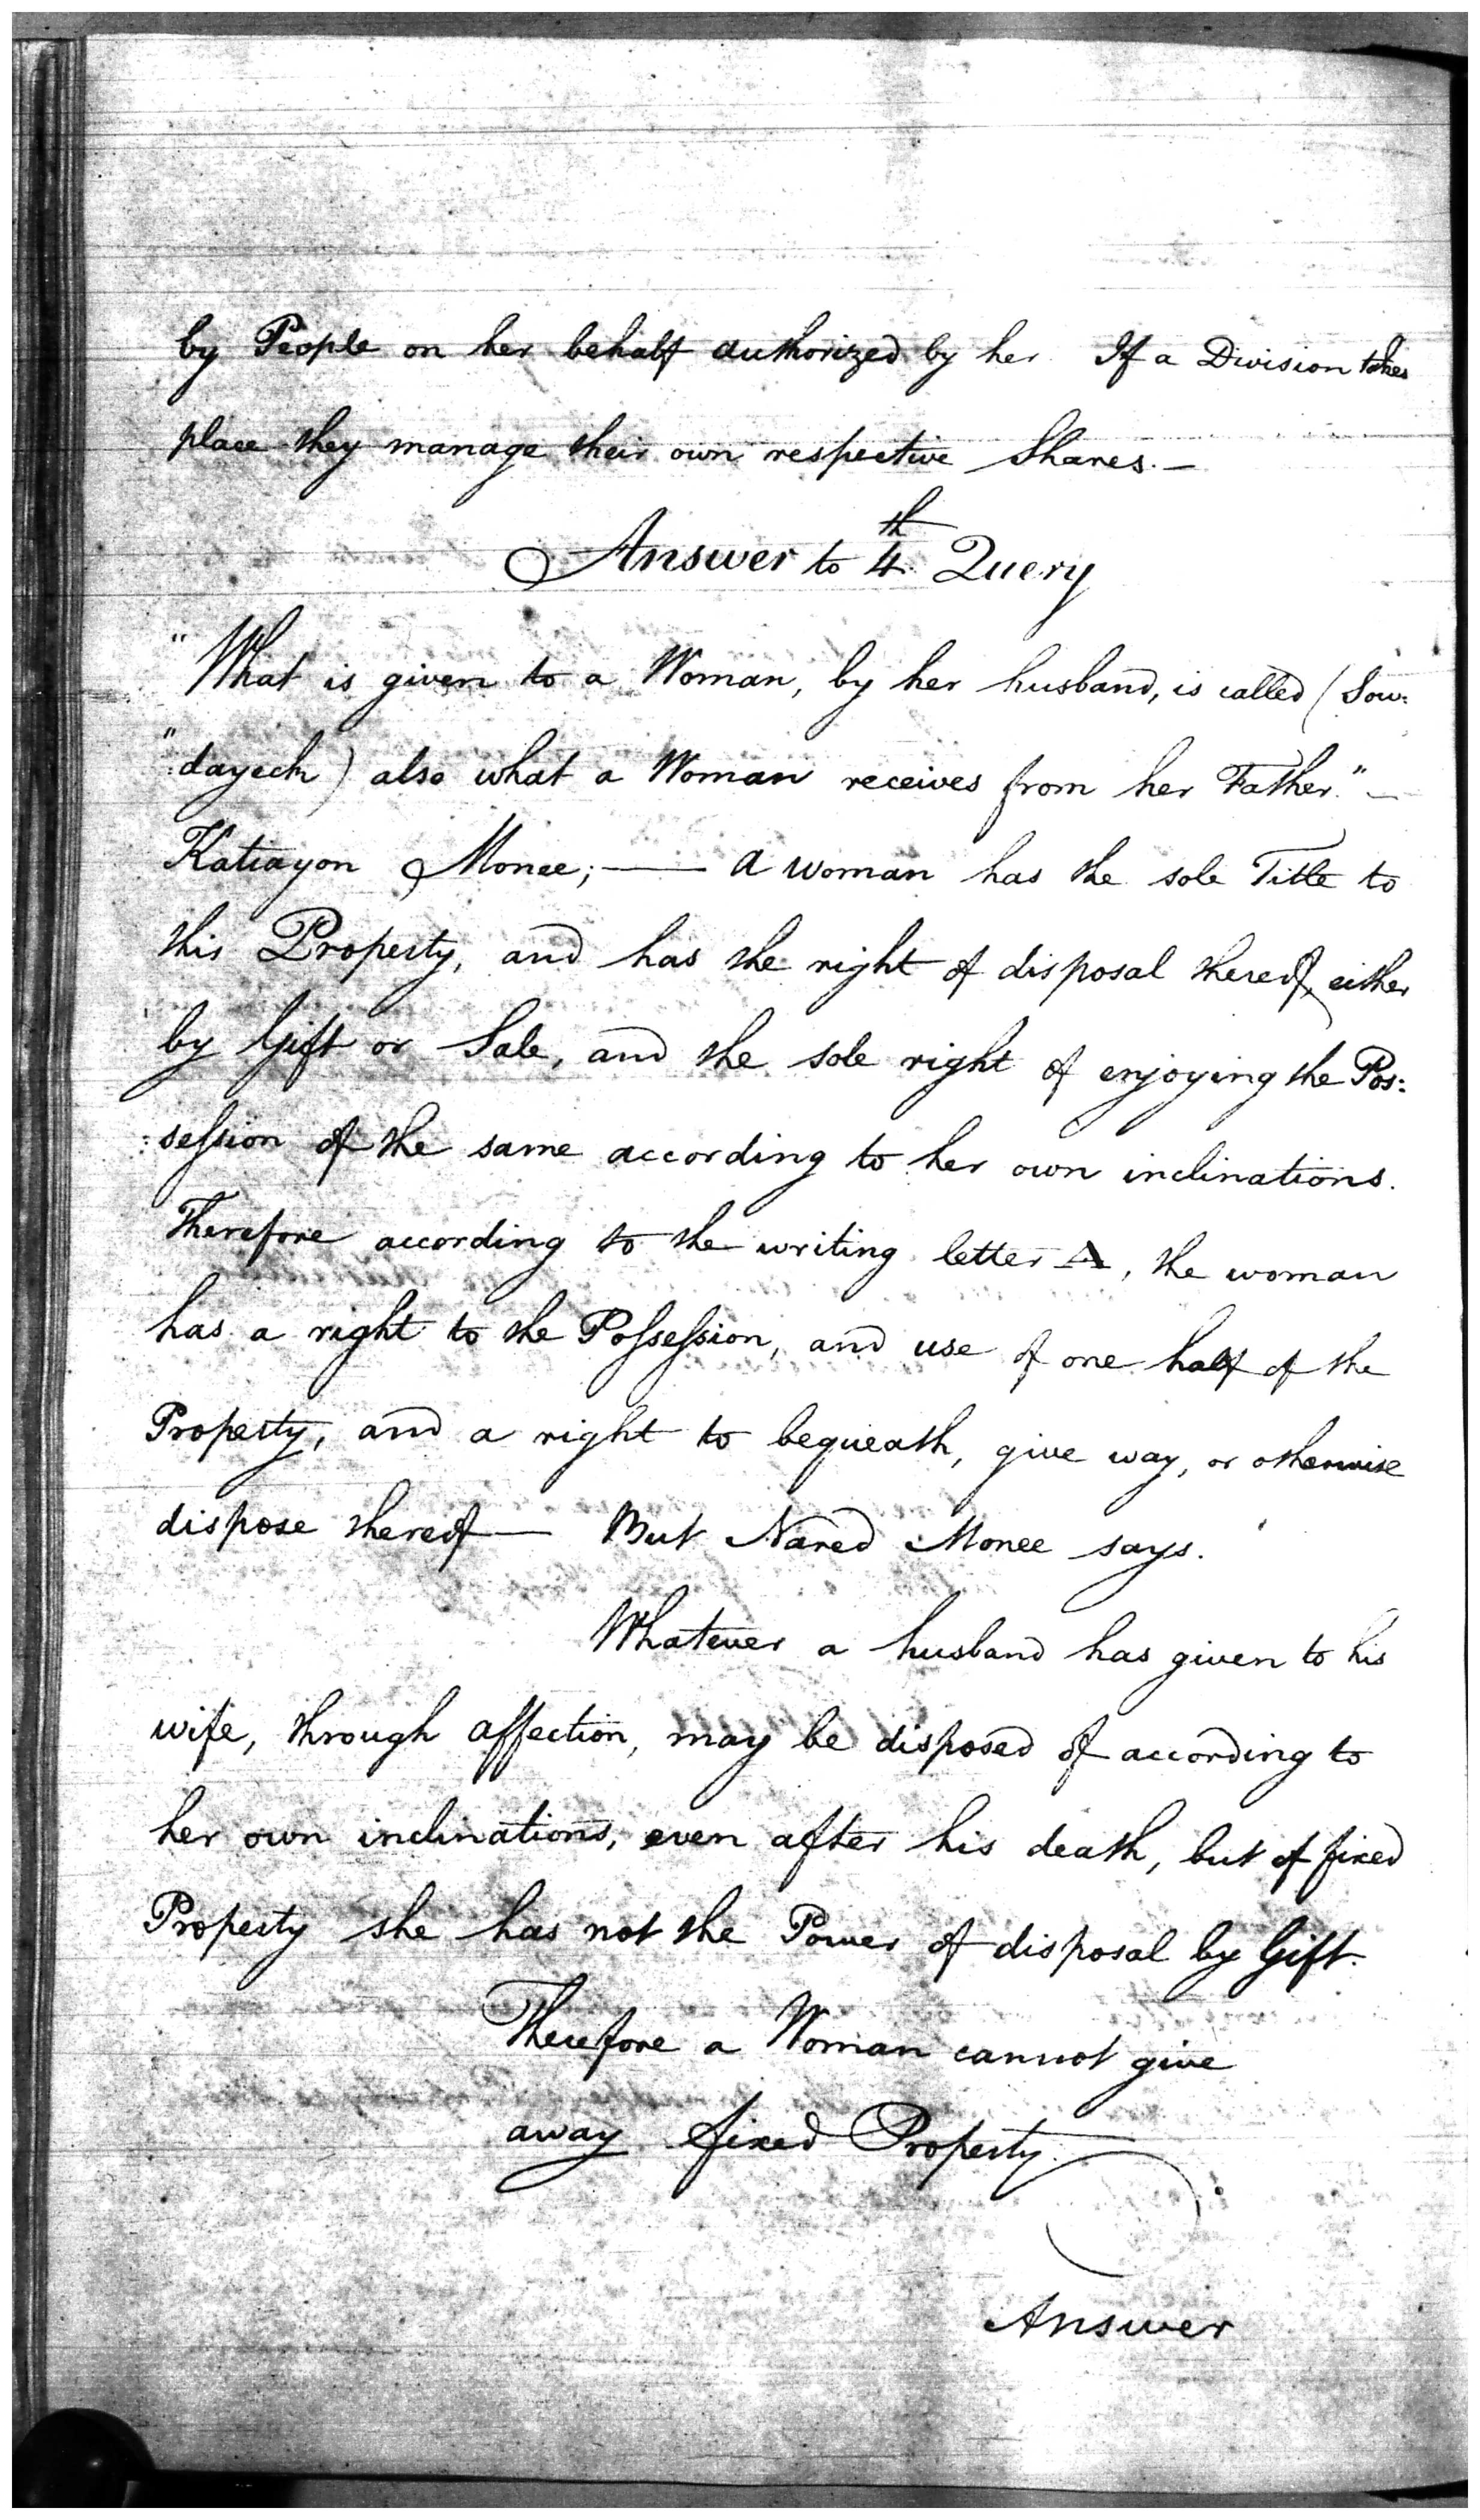 by People on her behalf authorized by her If a Division takes
place they manage their own respective Shares.—
Answer to 4th Query
"What is given to a Woman, by her husband, is called (Sow:
":dayeck) also what a Woman receives from her Father."—
Katiayon Monee;—— A woman has the sole Title to
this Property, and has the right of disposal thereof, either
by Gift or Sale, and the sole right of enjoying the Pos:
:session of the same according to her own inclinations.
Therefore according to the writing letter A, the woman
has a right to the Possession, and use of one half of the
Property, and a right to bequeath, give way, or otherwise
dispose thereof— But Nared Monee says.
Whatever a husband has given to his
wife, through affection, may be disposed of according to
her own inclinations, even after his death, but of fixed
Property she has not the Power of disposal by Gift.
Therefore a Woman cannot give
away fixed Property.
Answer